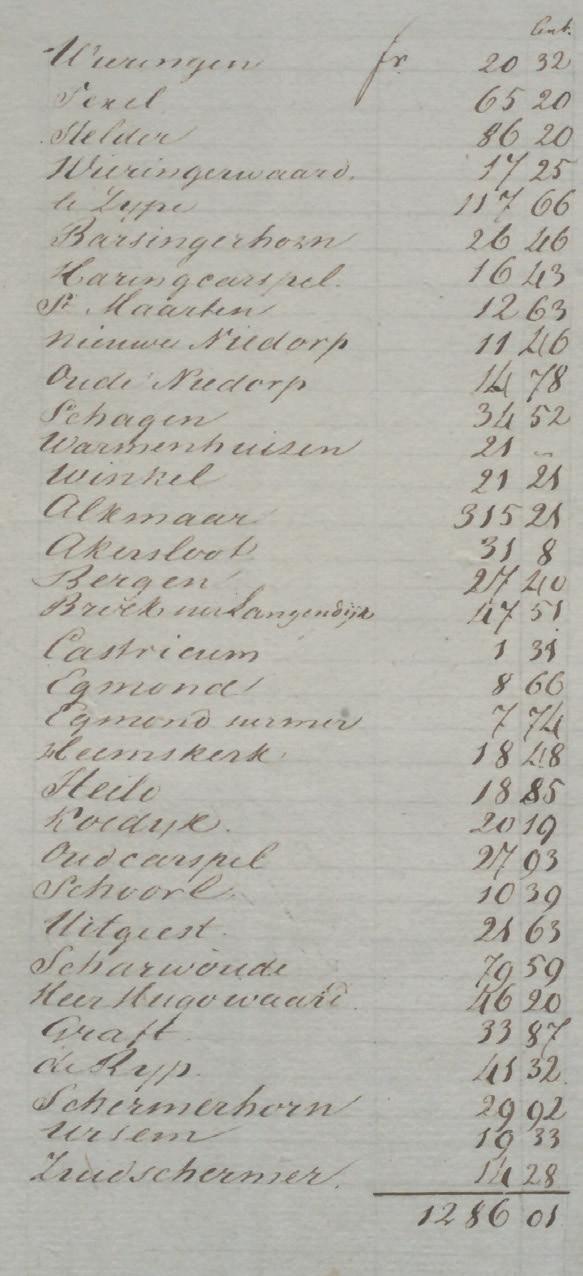 Cent.
Wieringen fr. 20 32
Texel 65 20
Helder 86 20
Wieringerwaard. 17 25
de Zype 117 66
Barsingerhorn 26 46
Haringcarspel. 16 43
St Maarten 12 63
nieuwe Niedorp 11 46
Oude Niedorp 14 78
Schagen 34 52
Warmenhuisen 21 „
Winkel 21 21
Alkmaar 315 21
Akersloot 31 8
Bergen 27 40
Broek en Langendijk 47 51
Castricum 1 31
Egmond 8 66
Egmond 7 74
Heemskerk 18 48
Heilo 18 85
Koedyk. 20 19
Oudcarspel 27 93
Schoorl 10 39
Uitgeest. 21 63
Scharwoude 79 59
Heer Hugowaard. 46 20
Graft. 33 87
de Ryp. 41 32
Schermerhorn 29 92
Ursem 19 33
Zuidschermer. 14 28
1286 01